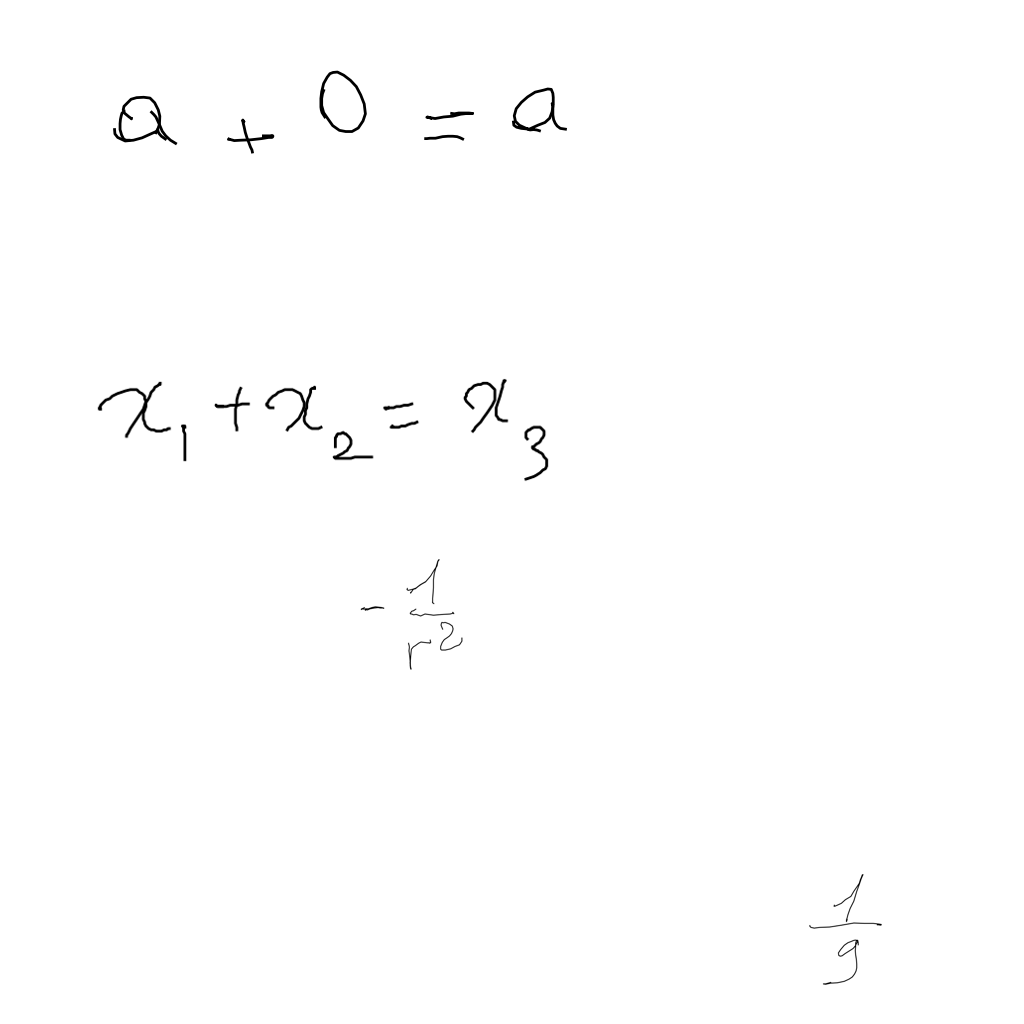 a + 0 = a
x₁ + x₂ = x₃
- 1/r²
1/9